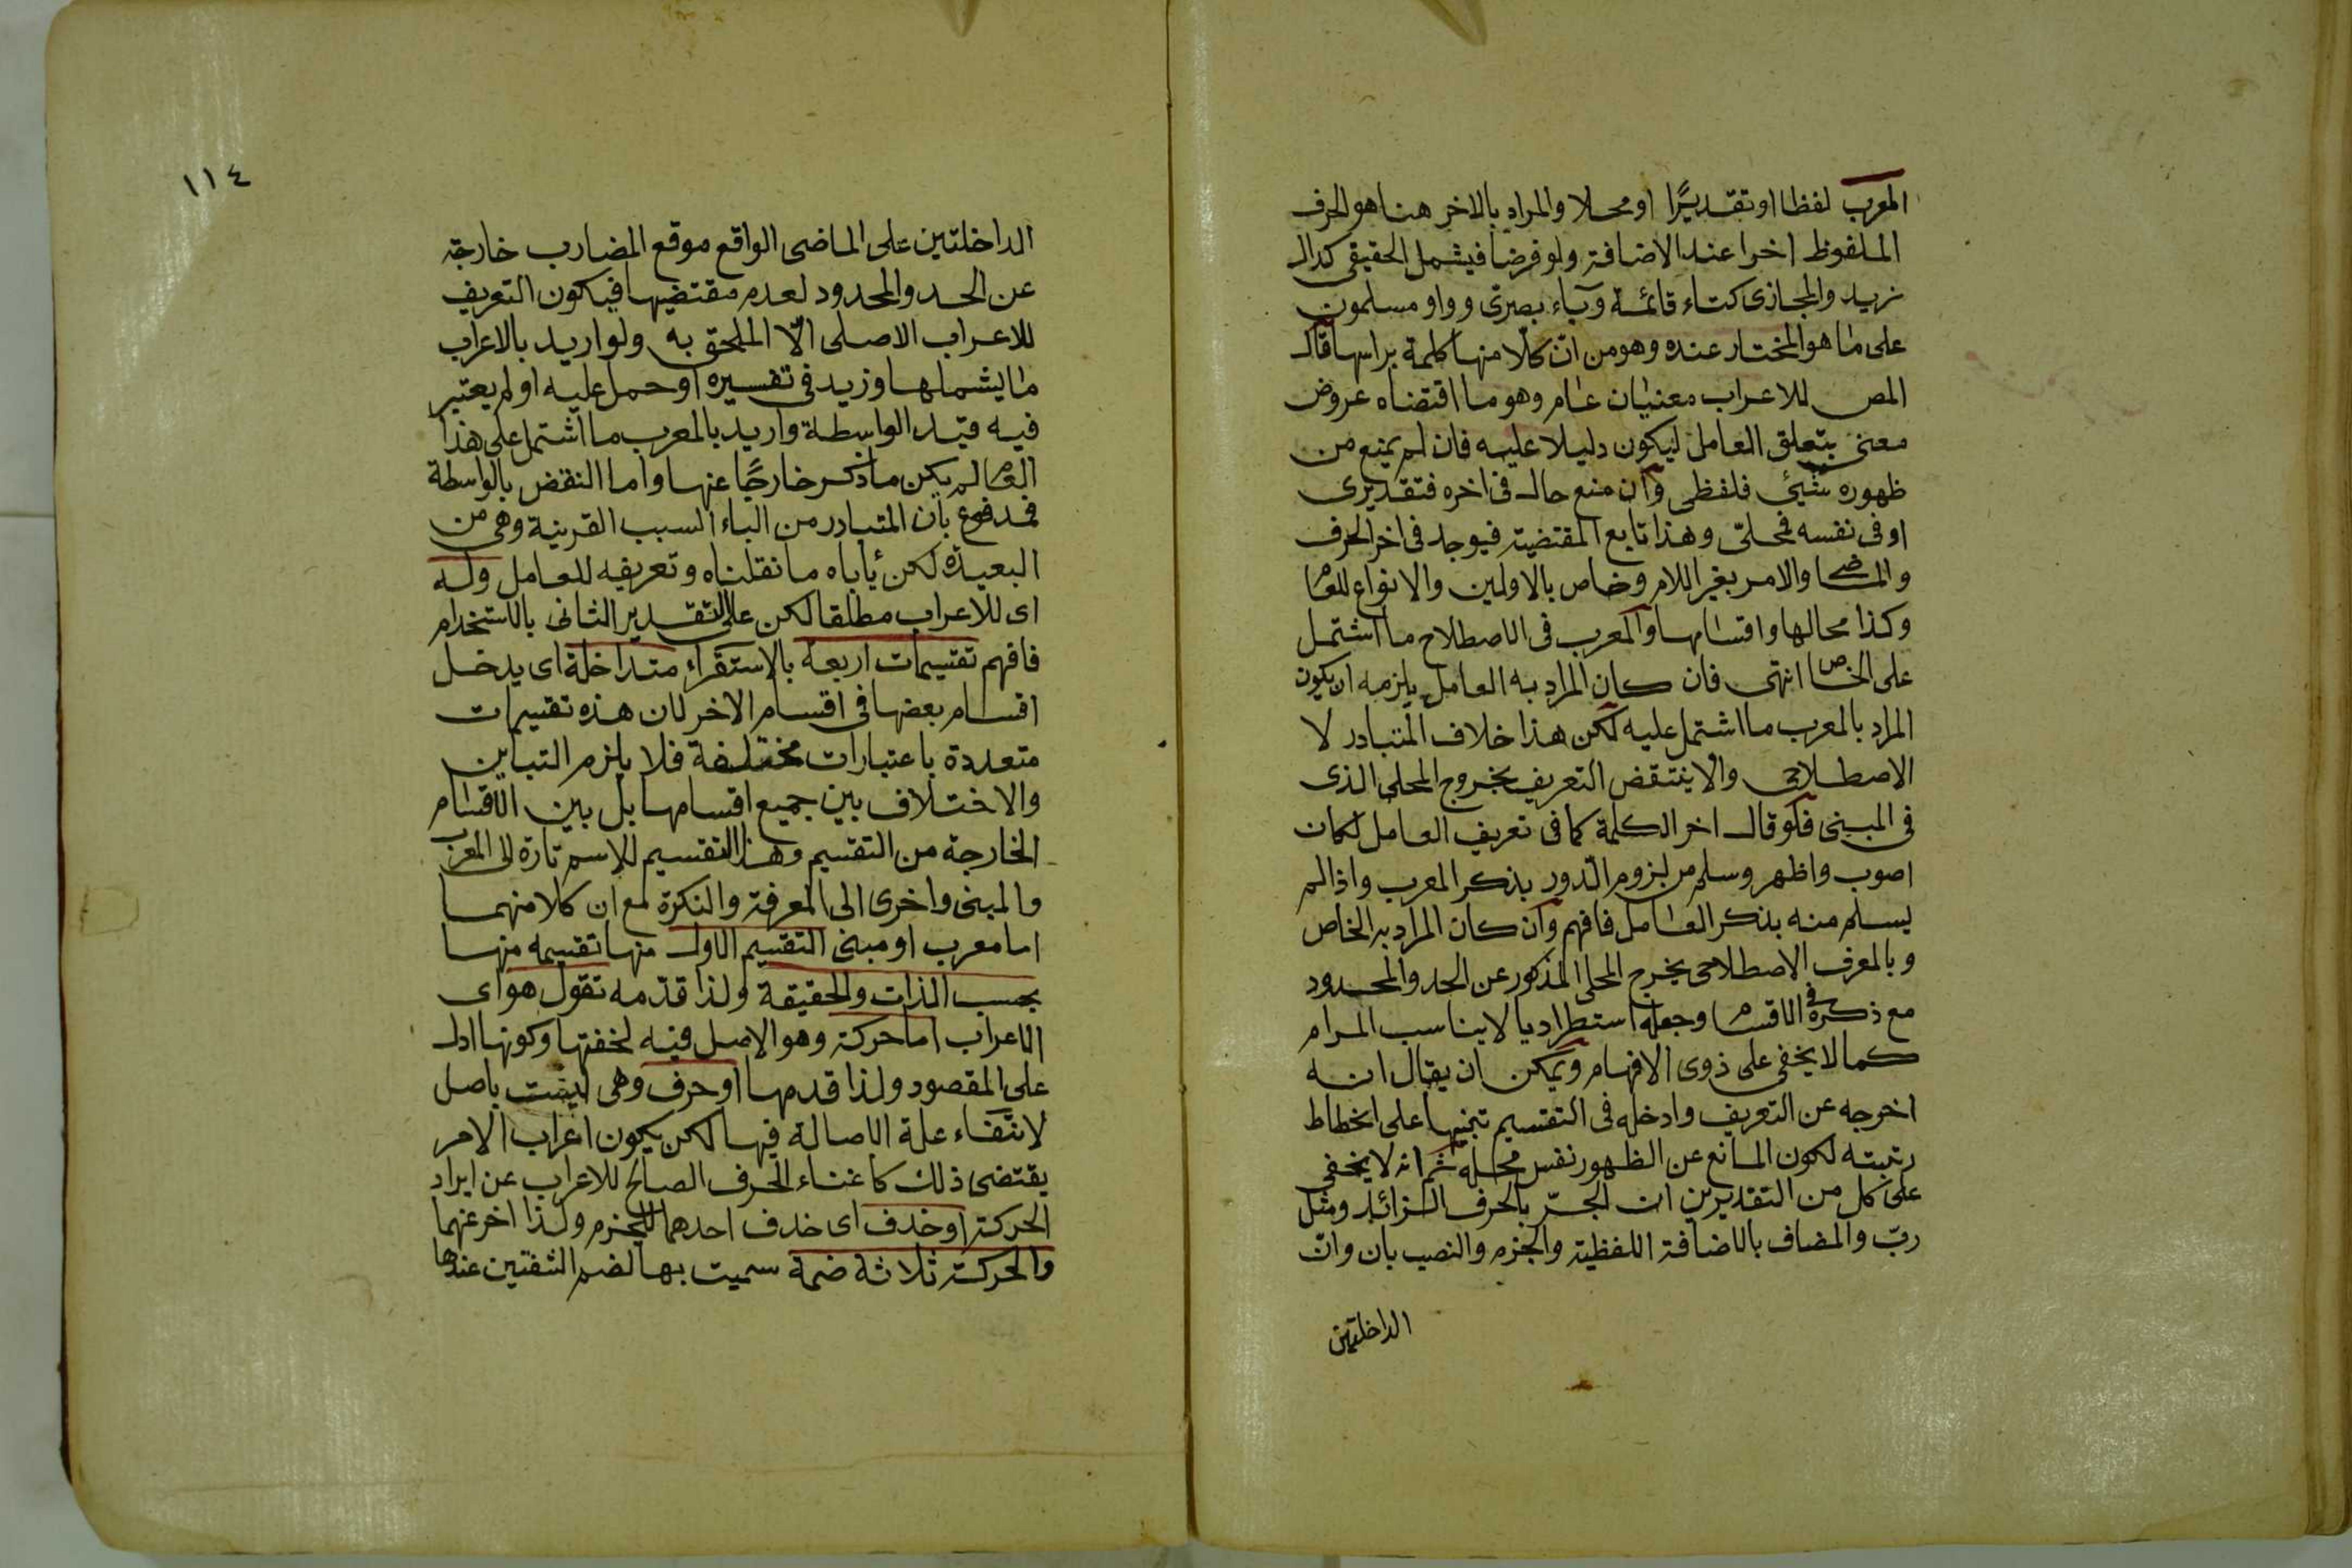 المعرب لفظا او تقديرًا او محلا والمراد بالاخر هنا هو الحرف
الملفوظ اخرا عند الاضافة ولو فرضا فيشمل الحقيقى كدال
زيد والمجازى كتاء قائمة وياء بصرى وواو مسلمون
على ما هو المختار عنده وهو من ان كلا منها كلمة براسها قال
المص للاعراب معنيان عام وهو ما اقتضاه عروض
معنى بتعلق العامل ليكون دليلا عليه فان لم يمنع من
ظهوره شيئ فلفظى وان منع حال فى اخره فتقديرى
او فى نفسه فمحلى وهذا تابع المقتضيه فيوجد فى اخر الحرف
والمضا والامر بغير اللام وخاص بالاولين والانواع للعام
وكذا محالها واقسامها والمعرب فى الاصطلاح ما اشتمل
على الخاص انتهى فان كان المراد به العامل يلزمه ان يكون
المراد بالمعرب ما اشتمل عليه لكن هذا خلاف المتبادر لا
الاصطلاحى والا ينتقض التعريف بخروج المحلى الذى
فى المبنى فلو قال اخر الكلمة كما فى تعريف العامل لكان
اصوب واظهر وسلم من لزوم الدور بذكر المعرب واذا لم
يسلم منه بذكر العامل فافهم وان كان المراد به الخاص
وبالمعرف الاصطلاحى يخرج المحلى المذكور عن الحد والمحدود
مع ذكره فى الاقسام وجعله استطراديا لا يناسب المرام
كما لا يخفى على ذوى الافهام ويمكن ان يقال انه
اخرجه عن التعريف وادخله فى التقسيم تنبيها على انحطاط
رتبته لكون المانع عن الظهور نفس محله ثم انه لا يخفى
على كل من التقديرين ان الجرّ بالحرف الزائد ومثل
ربّ والمضاف بالاضافة اللفظية والجزم والنصب بان وانّ
الداخلتين
١١٤
الداخلتين على الماضى الواقع موقع المضارب خارجة
عن الحد والمحدود لعدم مقتضيها فيكون التعريف
للاعراب الاصلى الّا الملحق به ولو اريد بالاعراب
ما يشملها وزيد فى تفسيره او حمل عليه او لم يعتبر
فيه قيد الواسطة واريد بالمعرب ما اشتمل على هذا
العام لم يكن ما ذكر خارجًا عنها واما النقض بالواسطة
فمدفوع بان المتبادر من الباء السبب القرينة وهى من
البعيدة لكن يأباه ما نقلناه وتعريفه للعامل وله
اى للاعراب مطلقا لكن على التقدير الثانى بالاستخدام
فافهم تقسيمات اربعة بالاستقراء متداخلة اى يدخل
اقسام بعضها فى اقسام الاخر لان هذه تقسيمات
متعددة باعتبارات مختلفة فلا يلزم التباين
والاختلاف بين جميع اقسامها بل بين الاقسام
الخارجة من التقسيم وهذا التقسيم للاسم تارة الى المعرب
والمبنى واخرى الى المعرفة والنكرة مع ان كلا منهما
اما معرب او مبنى التقسيم الاول منها تقسيمه منها
بحسب الذات والحقيقة ولذا قدّمه تقول هو اى
الاعراب اما حركة وهو الاصل فيه لخفتها وكونها ادل
على المقصود ولذا قدمها او حرف وهى ليست باصل
لانتفاء علة الاصالة فيها لكن يكون اعراب الامر
يقتضى ذلك كاغناء الحرف الصالح للاعراب عن ايراد
الحركة او حذف اى حذف احدهما للجزم ولذا اخر عنهما
والحركة ثلاثة ضمة سميت بها لضم الشفتين عندها